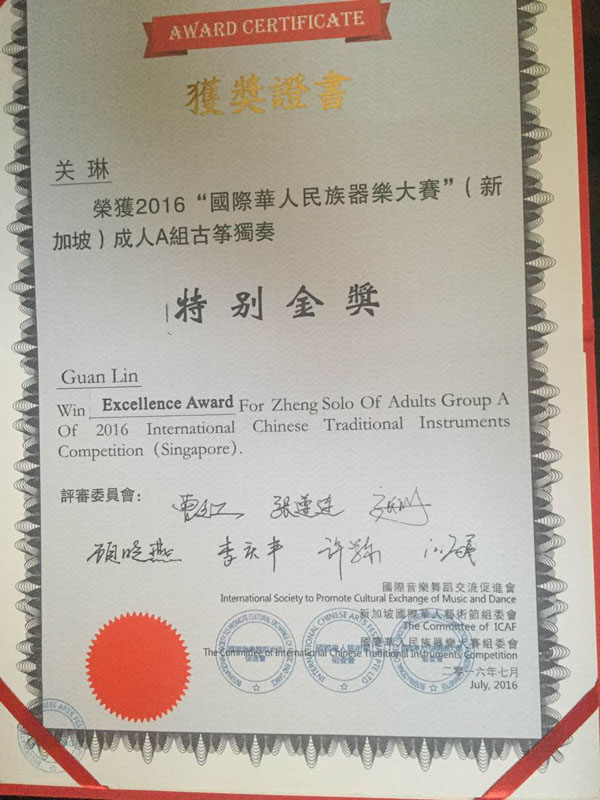 AWARD CERTIFICATE
獲獎證書
关 琳
榮獲2016“國際華人民族器樂大賽”（新
加坡）成人A組古箏獨奏
特别金獎
Guan Lin
Win Excellence Award For Zheng Solo Of Adults Group A
Of 2016 International Chinese Traditional Instruments
Competition (Singapore).
評審委員會：
顧曉燕 李庆丰
國際音樂舞蹈交流促進會
International Society to Promote Cultural Exchange of Music and Dance
新加坡國際華人藝術節組委會
The Committee of ICAF
國際華人民族器樂大賽組委會
The Committee of International Chinese Traditional Instruments Competition
二零一六年七月
July, 2016